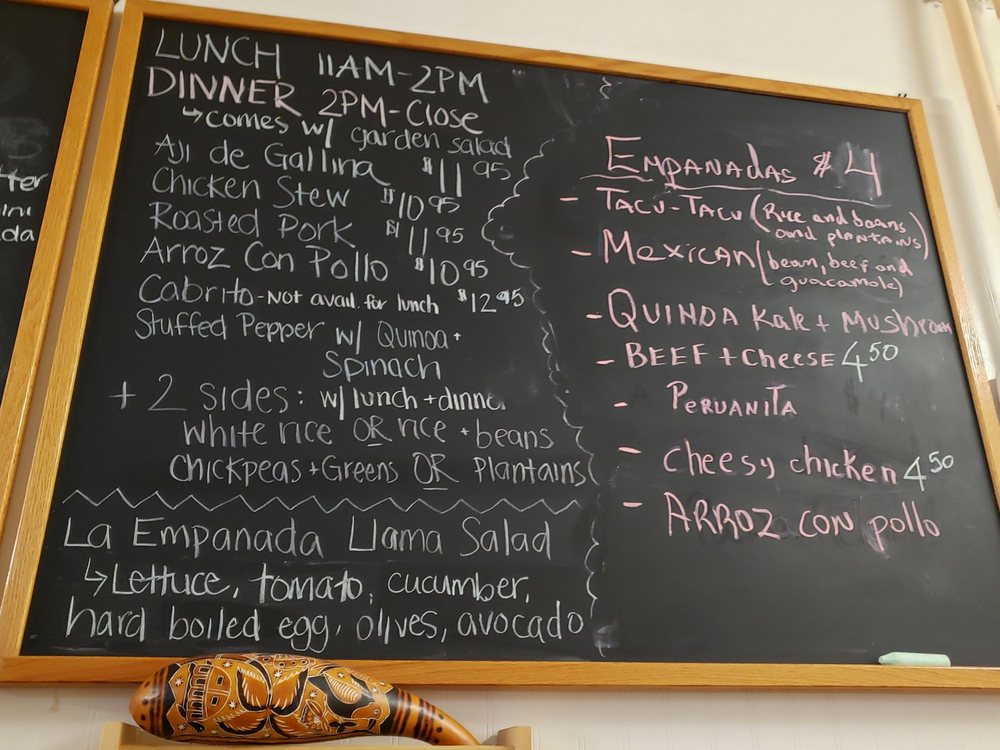 tter
ini
da
LUNCH 11AM-2PM
DINNER 2PM-Close
↳comes w/ garden salad
Aji de Gallina $11 95
Chicken Stew $10 95
Roasted Pork $11 95
Arroz Con Pollo $10 95
Cabrito-Not avail. for lunch $12 95
Stuffed Pepper w/ Quinoa +
Spinach
+ 2 sides: w/ lunch + dinner
white rice OR rice + beans
chickpeas + Greens OR Plantains
La Empanada Llama Salad
↳Lettuce, tomato, cucumber,
hard boiled egg, olives, avocado
EMPANADAS $4
- TACU-TACU (Rice and beans
and plantains)
- Mexican (bean, beef and
guacamole)
- QUINOA Kale + Mushroom
- BEEF + cheese 4 50
- PERUANITA
- cheesy chicken 4 50
- ARROZ CON pollo